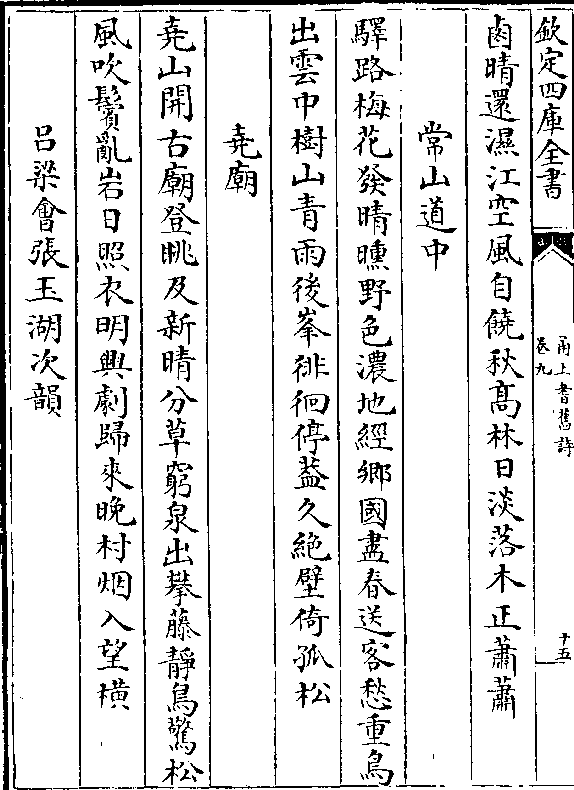 欽定四庫全書
甬上耆舊詩
卷九
十五
鹵晴還濕江空風自饒秋髙林日淡落木正蕭蕭
常山道中
驛路梅花發晴曛野色濃地經鄉國盡春送客愁重鳥
出雲中樹山青雨後峯徘徊停葢久絶壁倚孤松
堯廟
堯山開古廟登眺及新晴分草窮泉出攀藤靜鳥驚松
風吹鬢亂岩日照衣明興劇歸來晚村烟入望橫
呂梁會張玉湖次韻